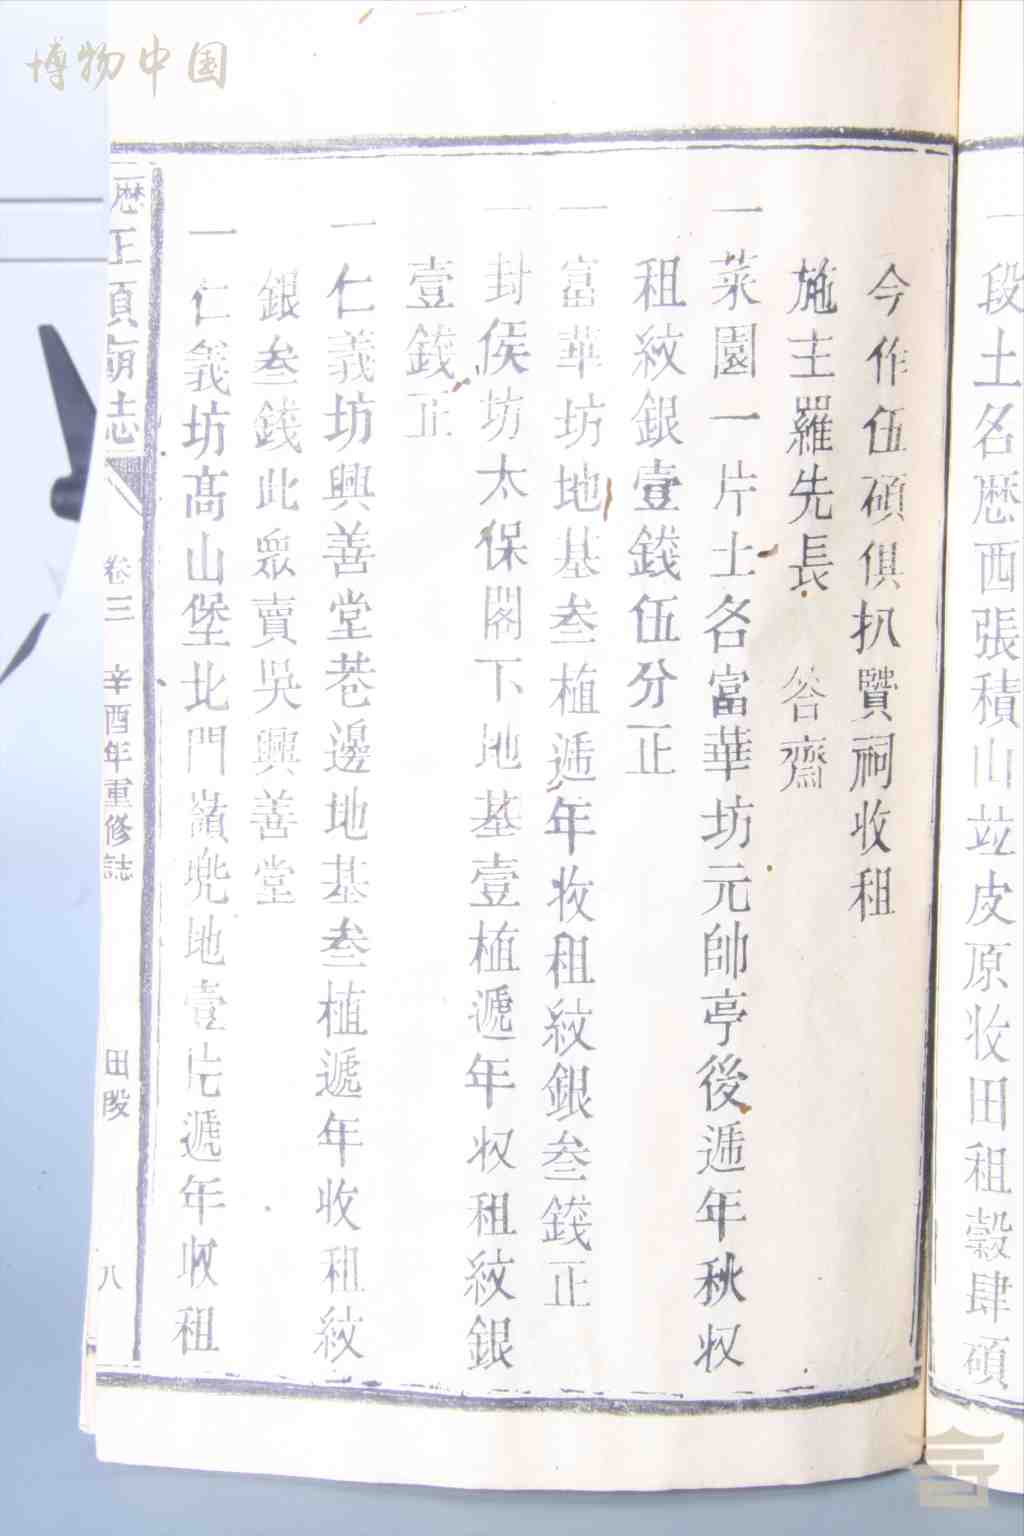 博物中国
一段土名歴西張積山竝皮原收田租穀肆碩
今作伍碩俱扒贒祠收租
施主羅先長 答齋
一菜園一片土名富華坊元帥亭後逓年秋収
租紋銀壹錢伍分正
一富華坊地基叁植逓年收租紋銀叁錢正
一封侯坊太保閣下地基壹植遞年収租紋銀
壹錢正
一仁義坊興善堂巷邊地基叁植遞年收租紋
銀叁錢此眾賣吳興善堂
一仁義坊高山堡北門嶺兜地壹片遞年收租
歴王頁廟志 卷三 辛酉年重修誌 田段 八